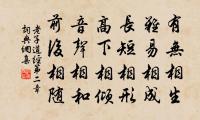 有無相生
難易相成
長短相形
高下相傾
音聲相和
前後相隨
老子道德經第二章
詞典網集